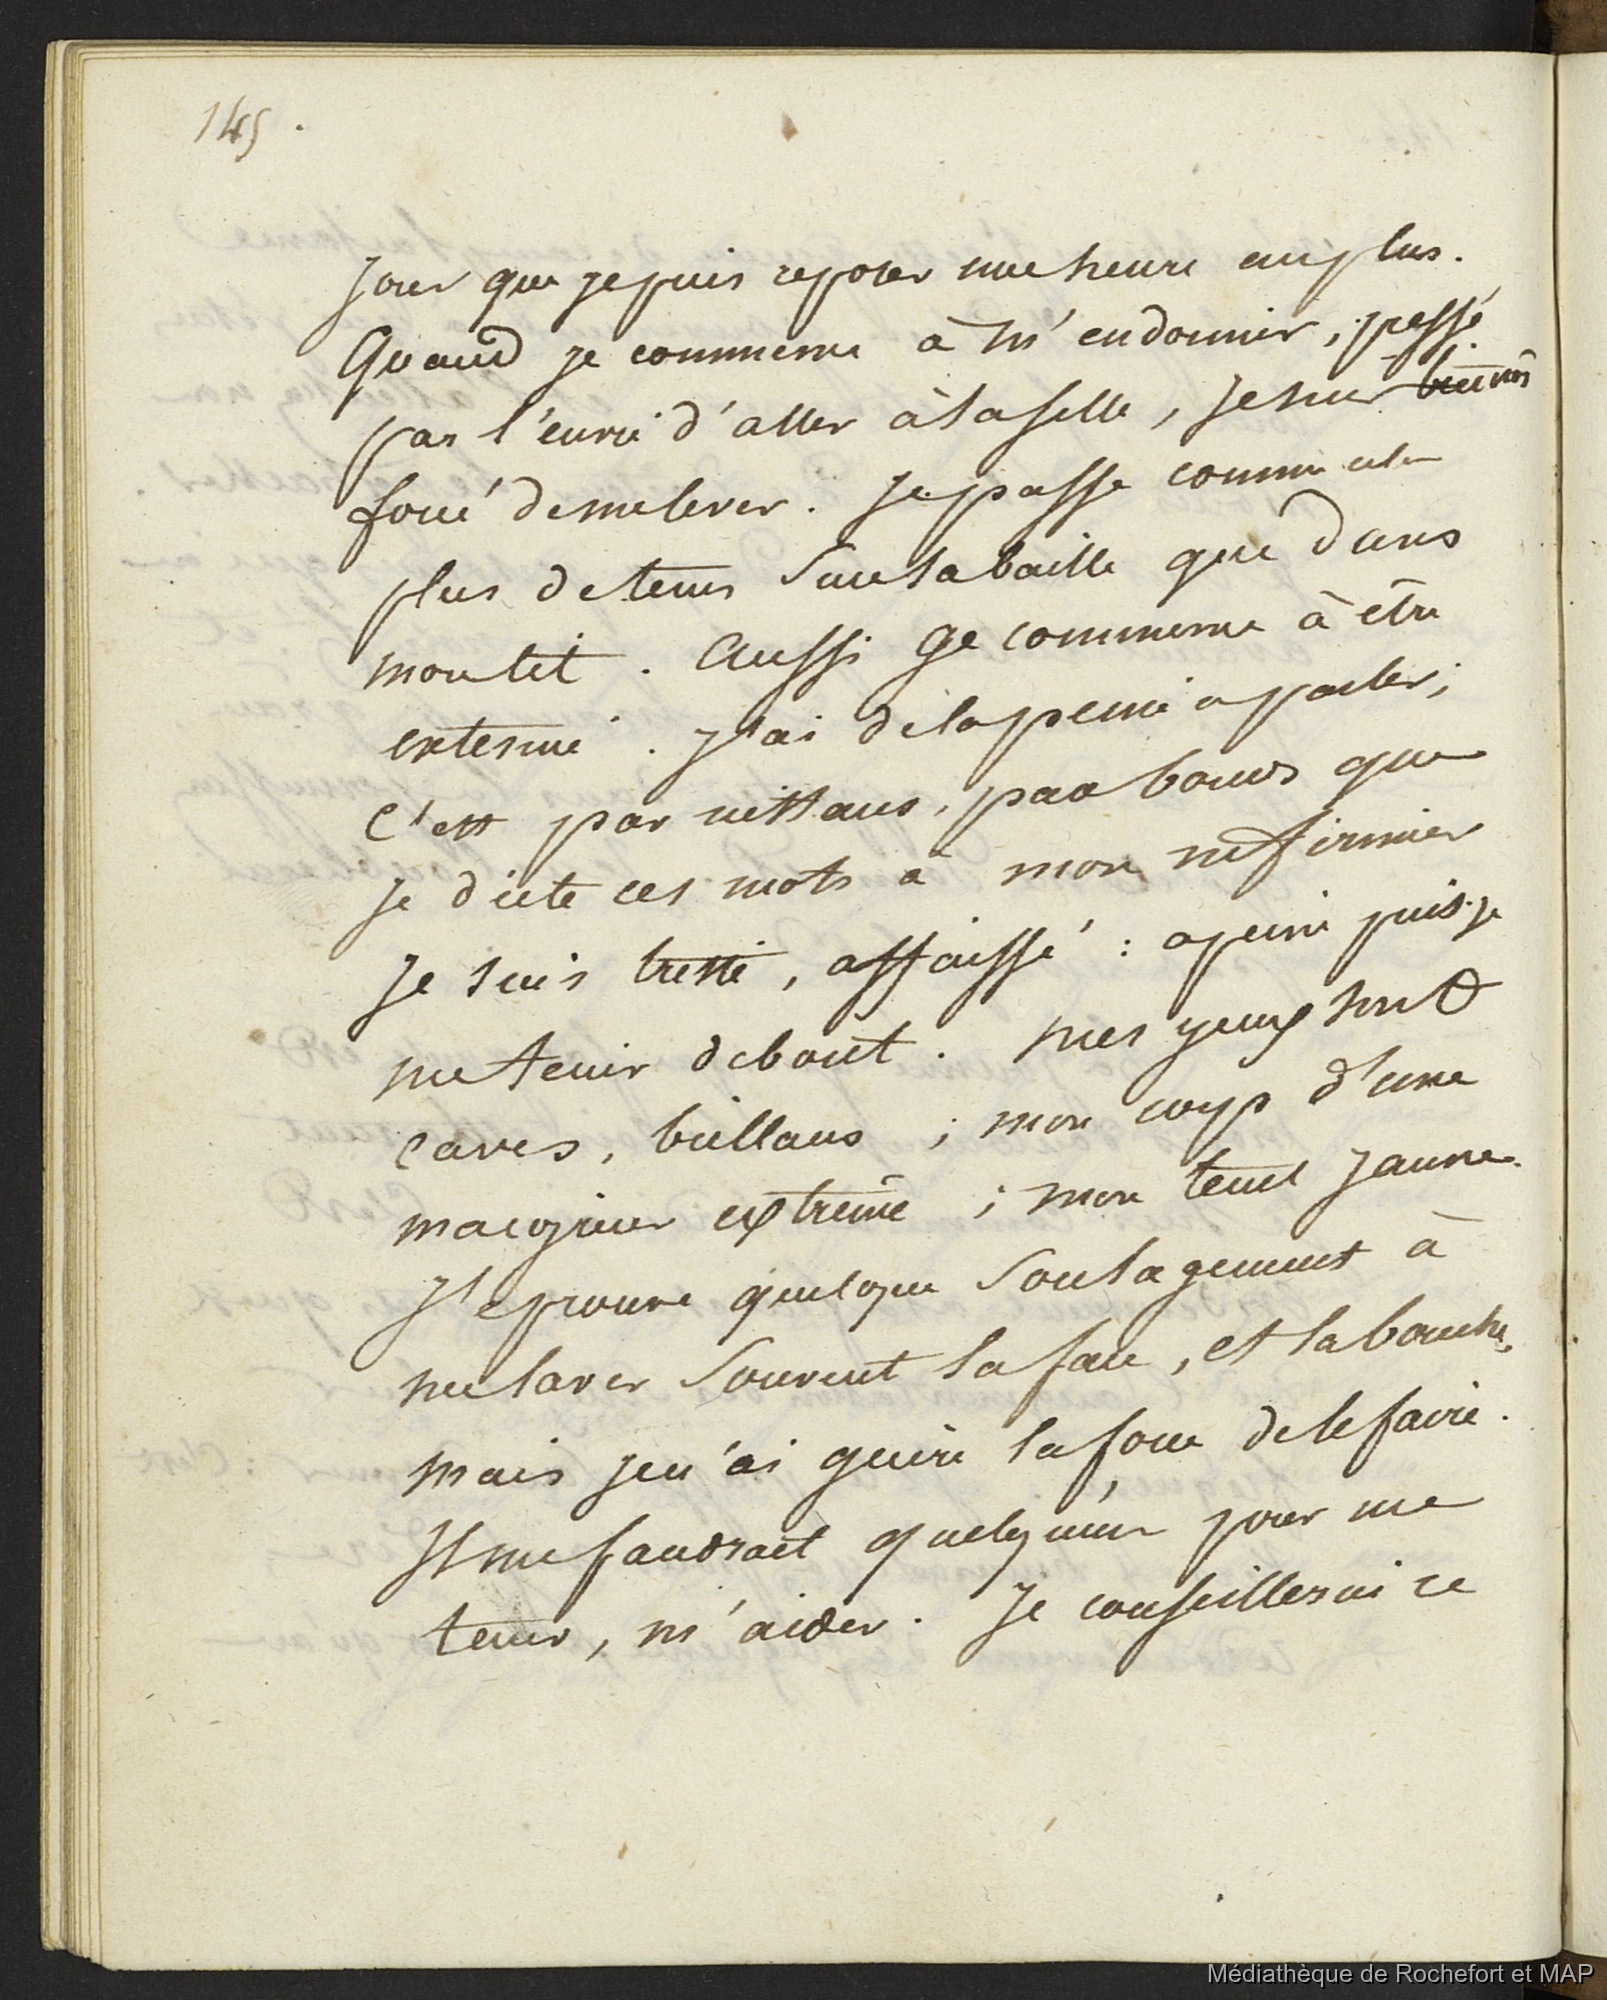 145.
Jour que je puis reposer une heure au plus.
Quand je commence à m'endormir, pressé
par l'envie d'aller à la selle, je suis bientôt
forcé de me lever. Je passe comme cela
plus de tems sur la baille que dans
mon lit. Aussi Je commence à être
extenué. J'ai de la peine a parler;
C'est par instans, par bonds que
je dicte ces mots à mon infirmier
Je suis triste, affaissé : a peine puis-je
me tenir debout. Mes yeux sont
caves, brillans ; mon corps d'une
maigreur extrême ; mon teint Jaune.
J'eprouve quelque soulagement à
me laver souvent la face, et la bouche,
mais je n'ai guère la force de le faire.
Il me faudrait quelqu'un pour me
tenir, m'aider. Je conseillerai ce
Médiathèque de Rochefort et MAP